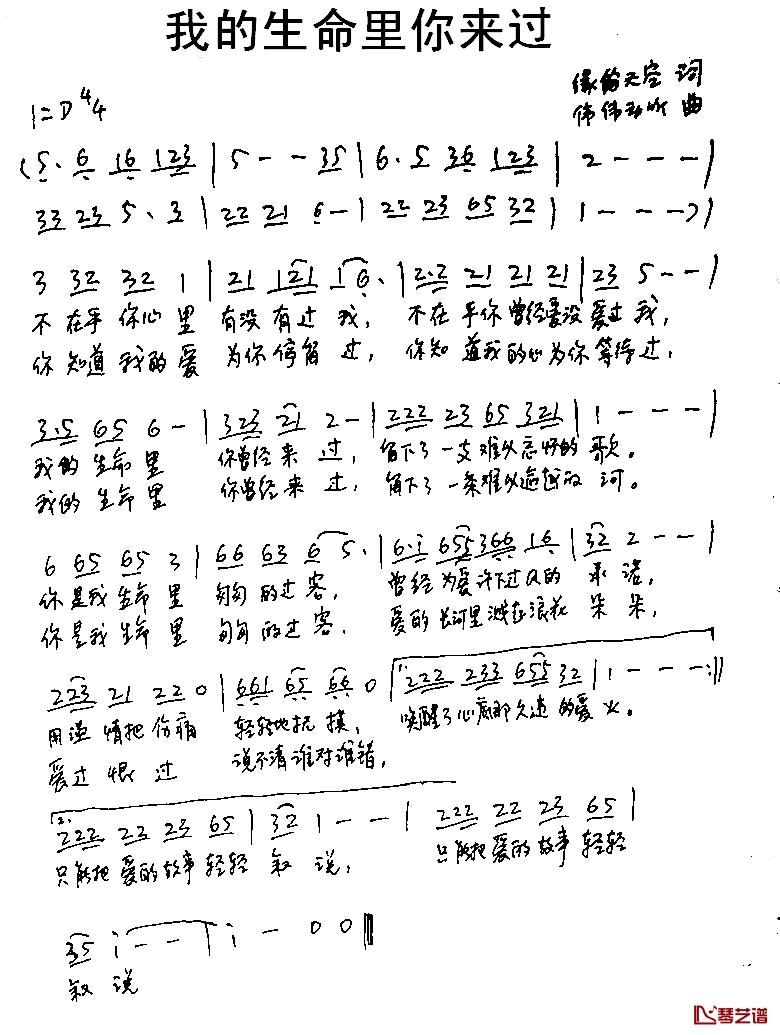 我的生命里你来过
缘的天空 词
1=D 4/4
伟伟动听 曲
(5. 6 16 123 | 5 - - 35 | 6. 5 36 123 | 2 - - - |
33 23 5. 3 | 22 21 6 - | 22 23 65 32 | 1 - - - )|
3 32 32 1 | 21 121 16. | 2.2 21 21 21 | 23 5 - - |
不在乎你心里 有没有过我, 不在乎你曾经爱没爱过我,
你知道我的爱 为你停留过, 你知道我的心为你等待过,
3.5 65 6 - | 323 21 2 - | 222 23 65 321 | 1 - - - |
我的生命里 你曾经来过, 留下了一支难以忘怀的歌。
我的生命里 你曾经来过, 留下了一条难以逾越的河。
6 65 65 3 | 66 63 6 5. | 6.i 655 366 16 | 32 2 - - |
你是我生命里 匆匆的过客, 曾经为爱许下过的 承诺,
你是我生命里 匆匆的过客, 爱的长河里溅在浪花 朵朵,
223 21 22 0 | 661 65 66 0 | 1. 222 233 655 32 | 1 - - - :||
用温情把伤痛 轻轻地抚摸, 唤醒了心底那久违的爱火。
爱过恨过 说不清谁对谁错,
2. 222 23 23 65 | 32 1 - - | 222 22 23 65 |
只能把爱的故事轻轻 叙说, 只能把爱的故事轻轻
35 i - - | i - 0 0 ||
叙说
琴艺谱